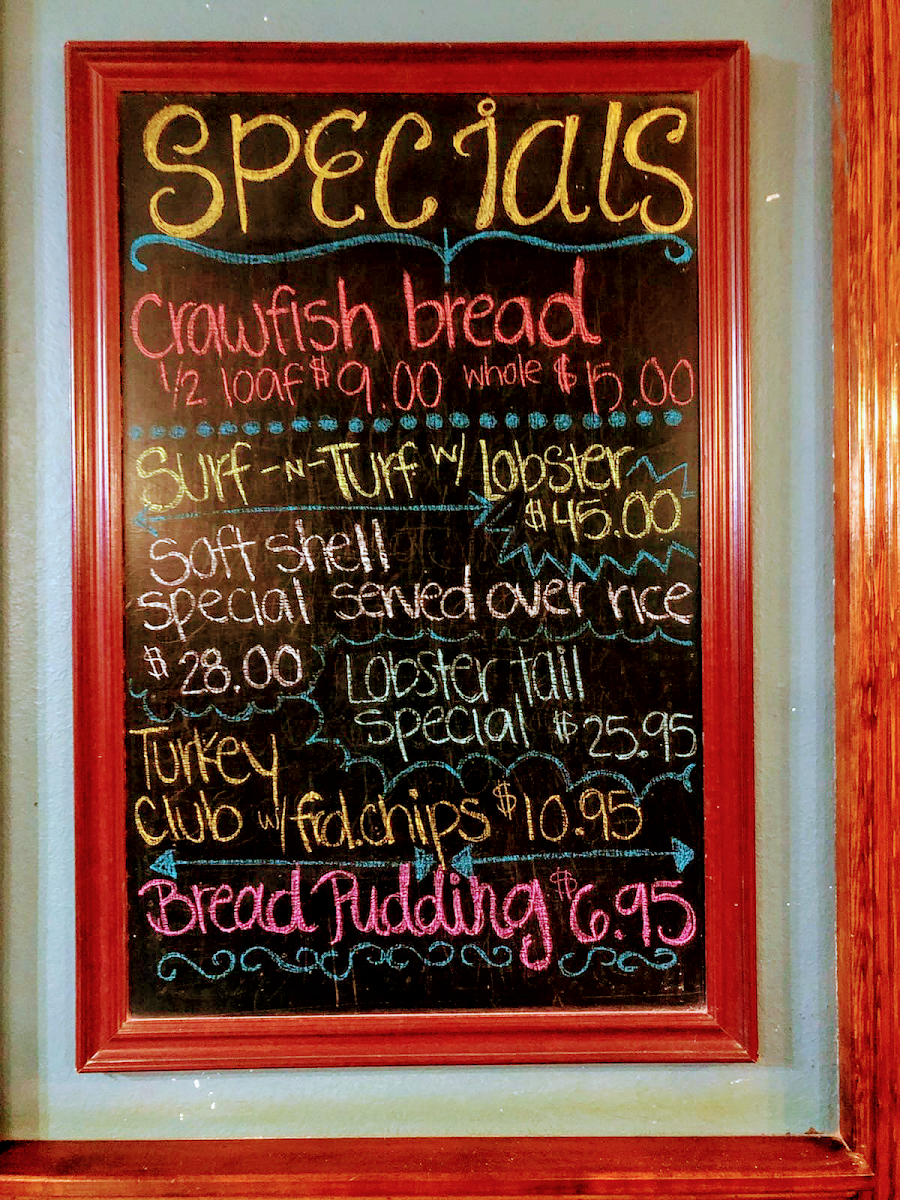 SPECiAlS
Crawfish bread
1/2 loaf $9.00 whole $15.00
Surf -N- Turf w/ Lobster
$45.00
Soft shell
special served over rice
$28.00
Lobster tail
special $25.95
Turkey
Club w/ frd.chips $10.95
Bread Pudding $6.95